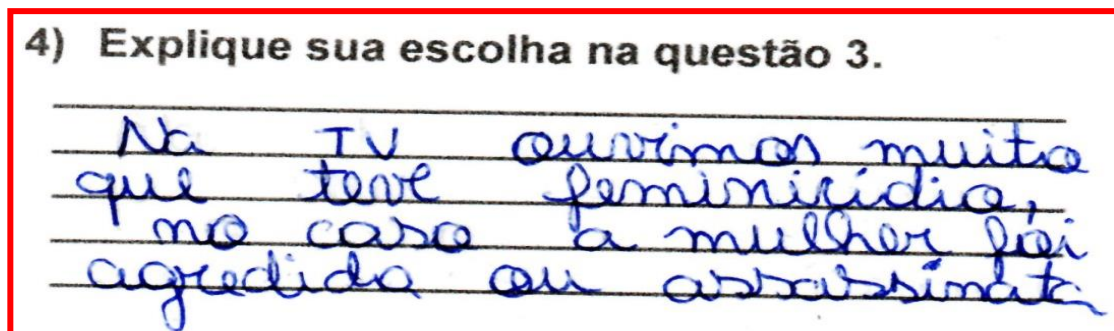 4) Explique sua escolha na questão 3.
Na TV ouvimos muito
que teve feminicídio,
no caso a mulher foi
agredida ou assassinata